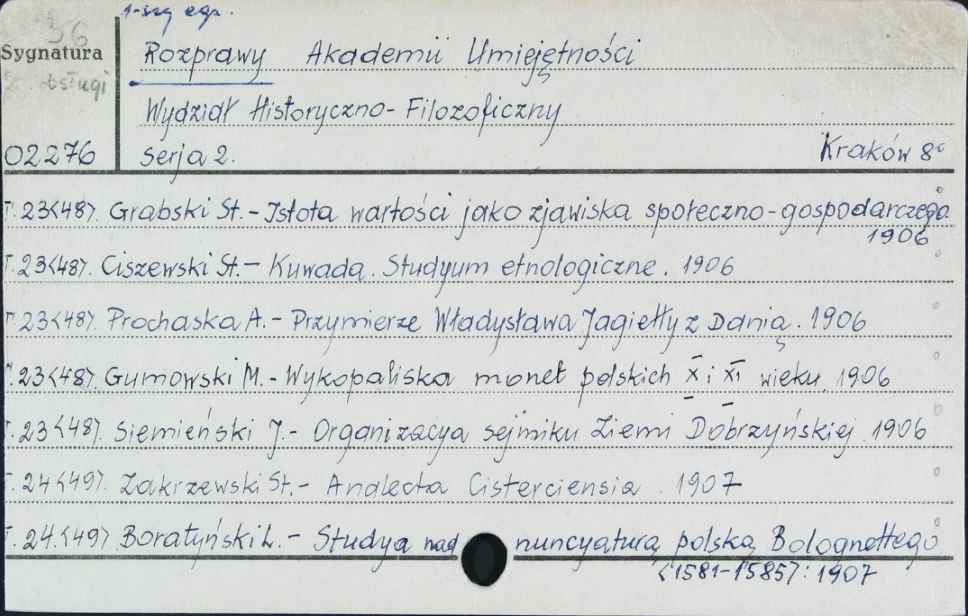 36
1-szy egz.
Sygnatura
Rozprawy Akademii Umiejętności
Wydział Historyczno-Filozoficzny
02276
Serja 2. Kraków 8°
T. 23<48>. Grabski St. - Istota wartości jako zjawiska społeczno-gospodarczego
1906
T. 23<48>. Ciszewski St. - Kuwada. Studyum etnologiczne. 1906
T. 23<48>. Prochaska A. - Przymierze Władysława Jagiełły z Danią. 1906
T. 23<48>. Gumowski M. - Wykopaliska monet polskich X i XI wieku 1906
T. 23<48>. Siemieński J. - Organizacya sejmiku Ziemi Dobrzyńskiej. 1906
T. 24<49>. Zakrzewski St. - Analecta Cisterciensia. 1907
T. 24.<49>. Boratyński L. - Studya nad nuncyaturą polską Bolognettego
<1581-1585>: 1907